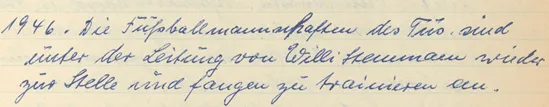 1946. Die Fußballmannschaften des Tus. sind
unter der Leitung von Willi Stemmann wieder
zur Stelle und fangen zu trainieren an.